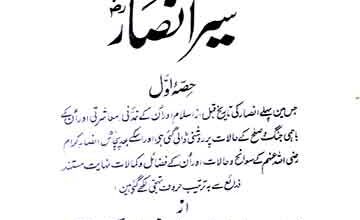 سیر انصارؓ
حصۂ اوّل
جس مین پہلے انصار کی تاریخ قبل از اسلام اور اُن کے تمدّنی، معاشرتی اور ان کے
باہمی جنگ و صلح کے حالات پر روشنی ڈالی گئی ہی، اور اسکے بعد پچاس انصار کرام
رضی اللہ عنہم کے سوانح و حالات اور اُن کے فضائل و کمالات نہایت مستند
ذرائع سے بہ ترتیب حروف تہجی لکھے گئے ہین،
از